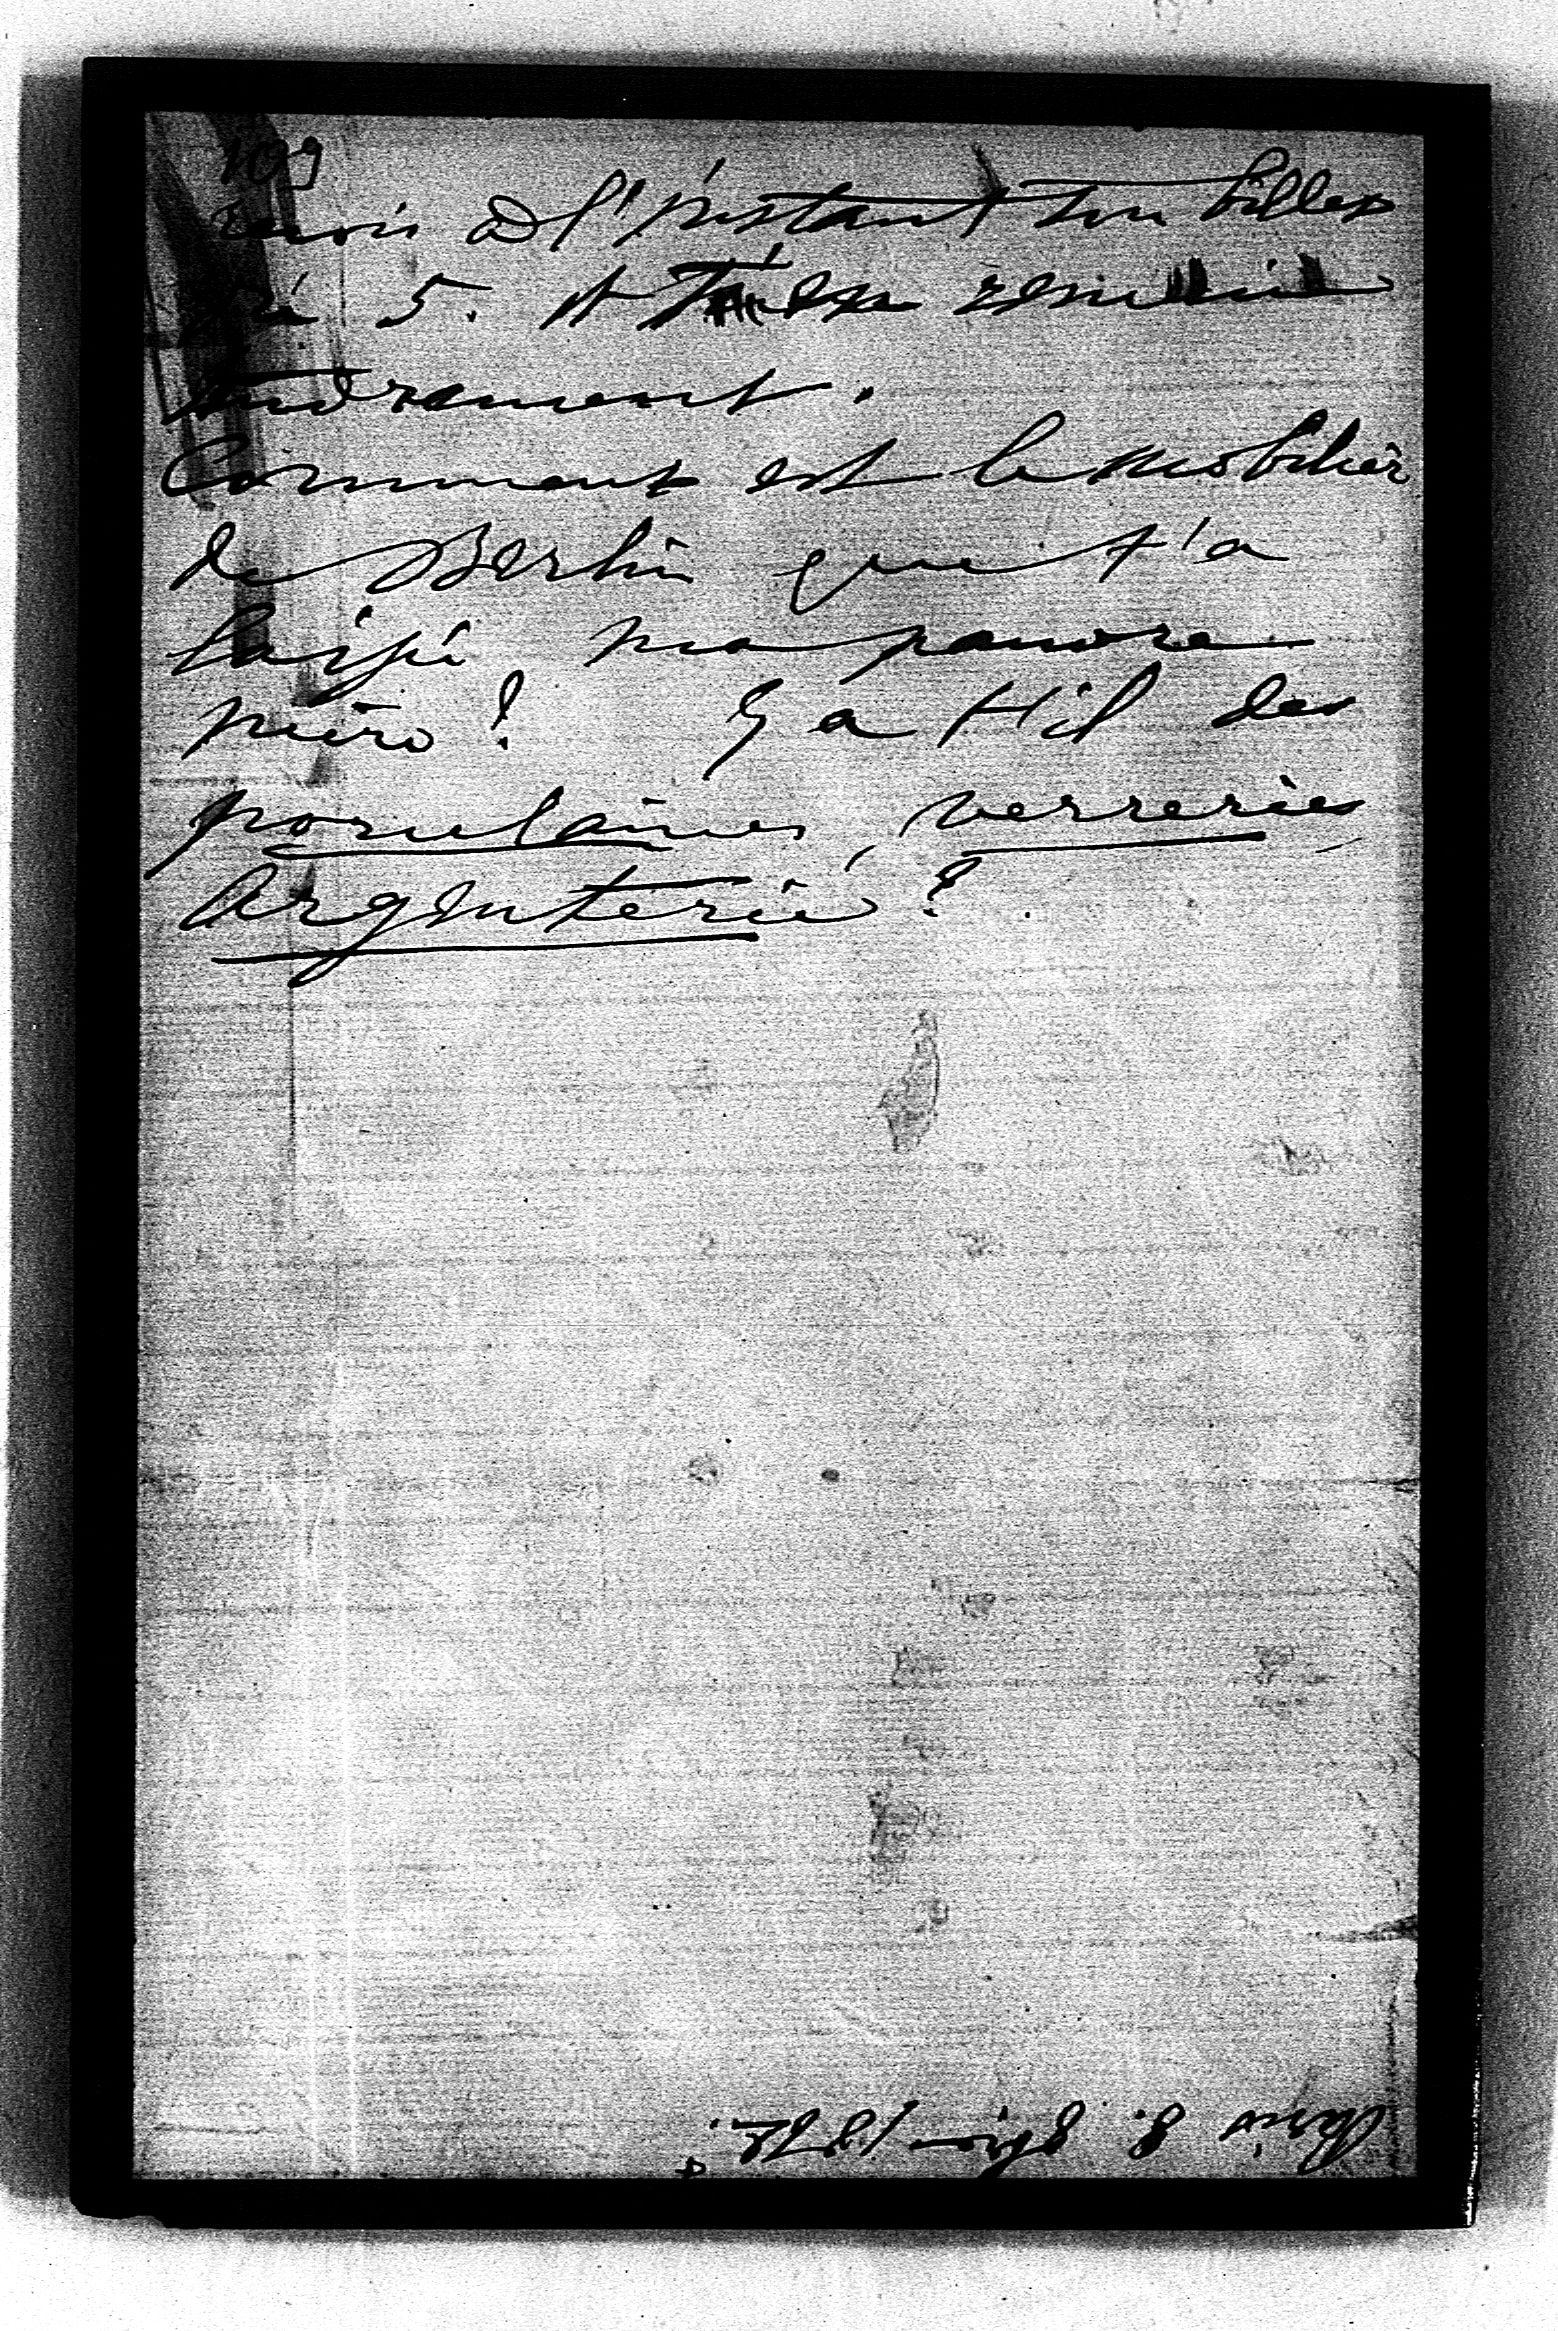 109
reçois à l'instant ton billet
5. et t'en remercie
tendrement.
Comment est le mobilier
de Berlin que t'a
laissé ma pauvre
mère? Y a t'il des
porcelaines, verreries,
argenterie?
Paris 8. 187